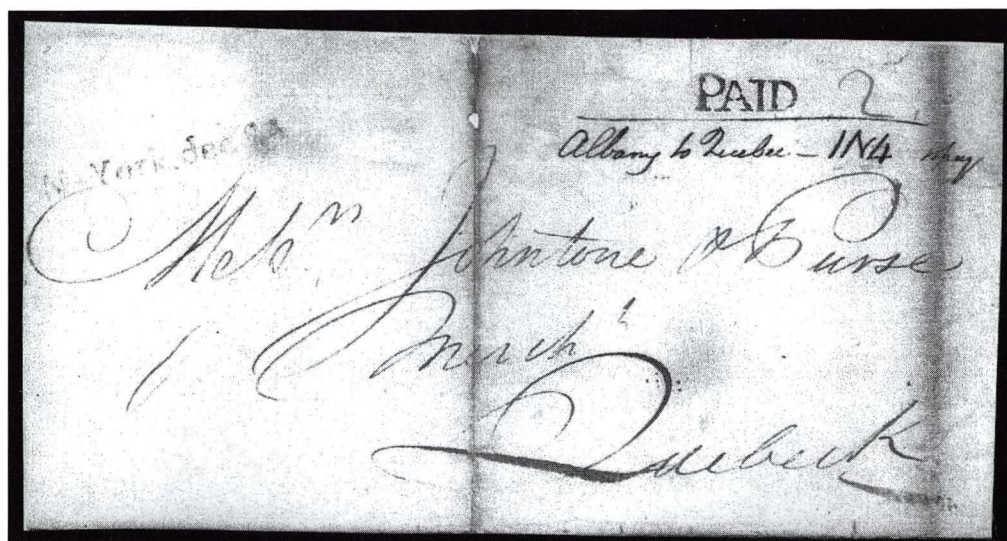 PAID 2
Albany to Quebec - 1N4
N. York, dec 24
Mess.rs Johntone & Purse
Merch.ts
Quebeck